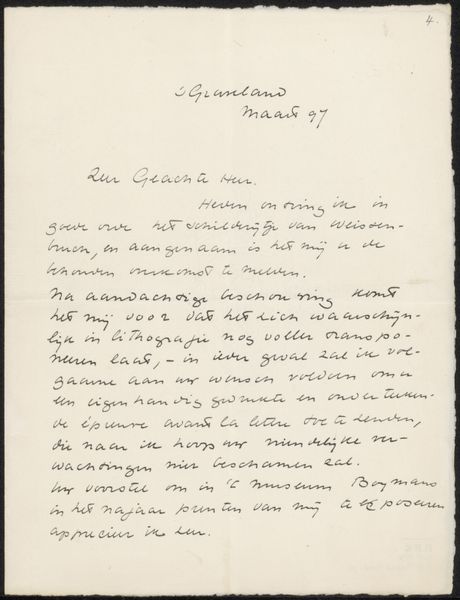 4.
's Graveland
Maart 97
Zeer Geachte Heer.
Heden ontving ik in
goede orde het schilderijtje van Weissen-
bruch, en aangenaam is het mij u de
behouden overkomst te melden.
Na aandachtige beschouwing komt
het mij voor dat het zich waarschijn-
lijk in lithografie nog voller transpo-
neeren laat, – in ieder geval zal ik vol-
gaarne aan uw wensch voldoen om u
een eigenhandig gedrukte en onderteeken-
de épreuve avant la lettre toe te zenden,
die naar ik hoop uw vriendelijke ver-
wachtingen niet beschamen zal.
Uw voorstel om in 't Museum Boymans
in het najaar prenten van mij te exposeeren
apprecieer ik zeer.